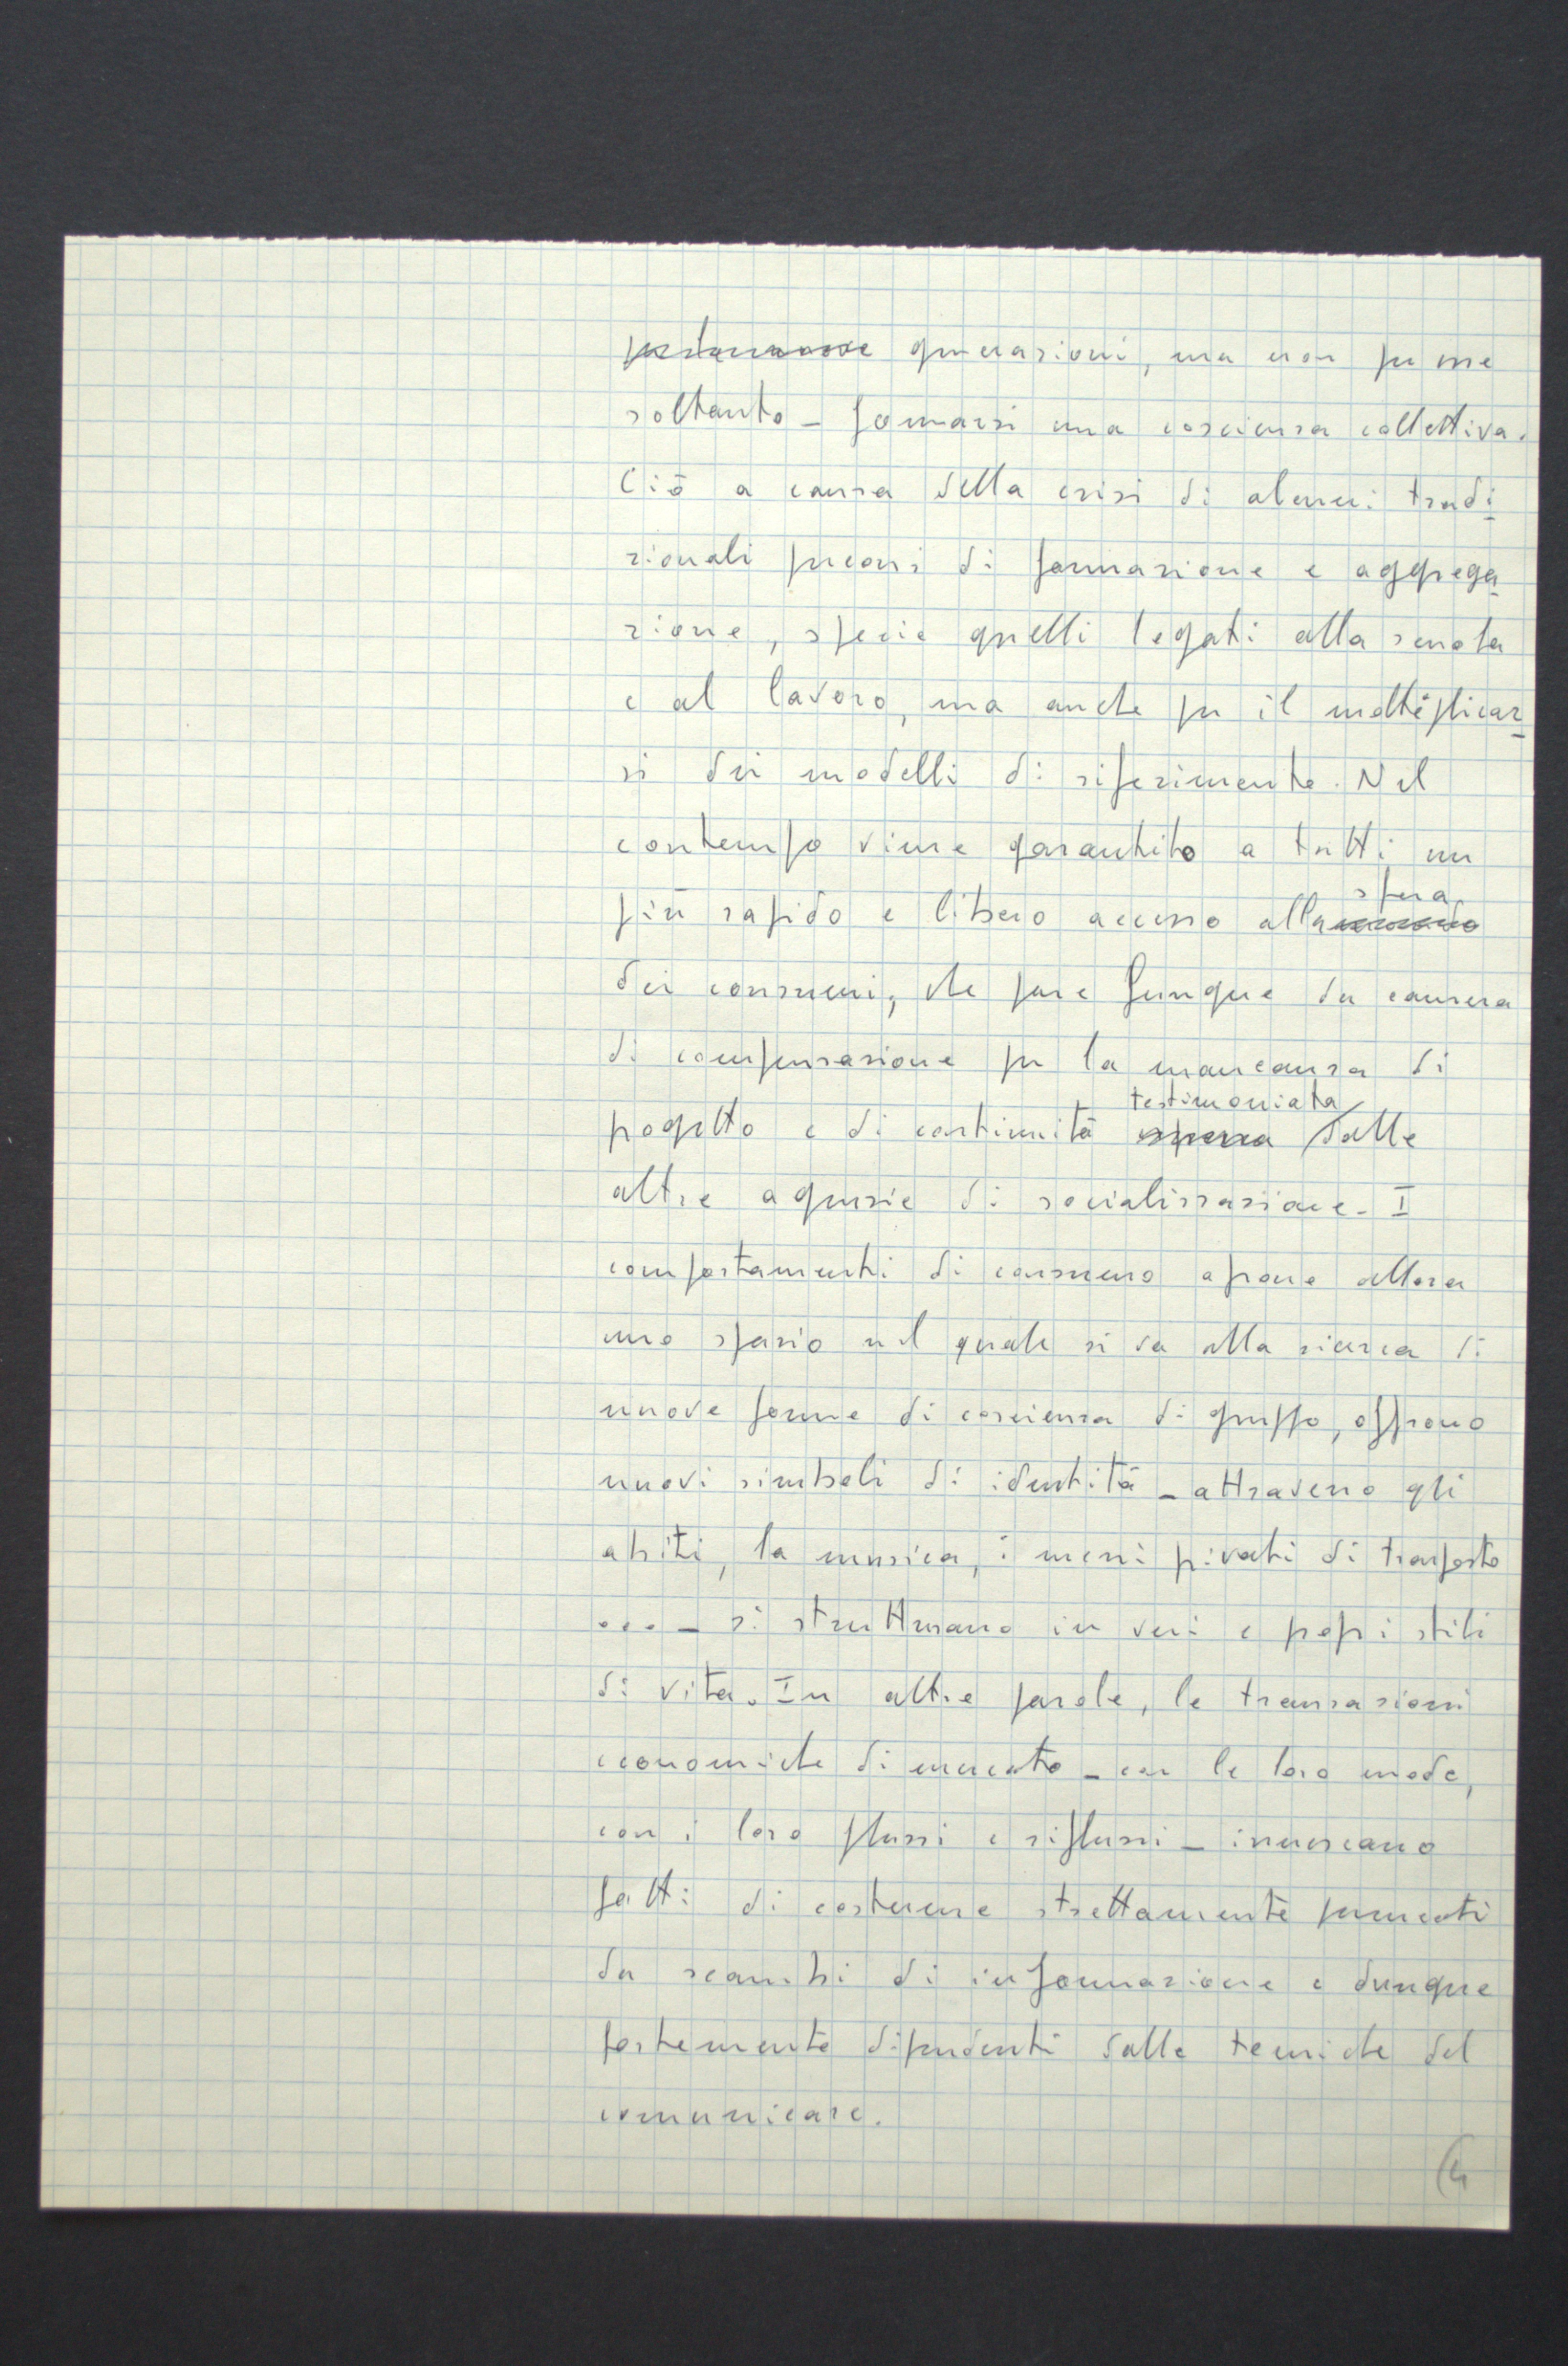 generazioni, ma non per esse
soltanto - formarsi una coscienza collettiva.
Ciò a causa della crisi di alcuni tradi
zionali percorsi di formazione e aggrega
zione, specie quelli legati alla scuola
e al lavoro, ma anche per il moltiplicar
si dei modelli di riferimento. Nel
contempo viene garantito a tutti un
più rapido e libero accesso alla sfera
dei consumi, che pare funga da camera
di compensazione per la mancanza di
progetto e di continuità testimoniata dalle
altre agenzie di socializzazione. I
comportamenti di consumo aprono allora
uno spazio nel quale si va alla ricerca di
nuove forme di coscienza di gruppo, offrono
nuovi simboli di identità - attraverso gli
abiti, la musica, i mezzi privati di trasporto
... - si strutturano in veri e propri stili
di vita. In altre parole, le transazioni
economiche di mercato - con le loro mode,
con i loro flussi e riflussi - innescano
fatti di costume strettamente permeati
da scambi di informazione e dunque
fortemente dipendenti dalle tecniche del
comunicare.
4